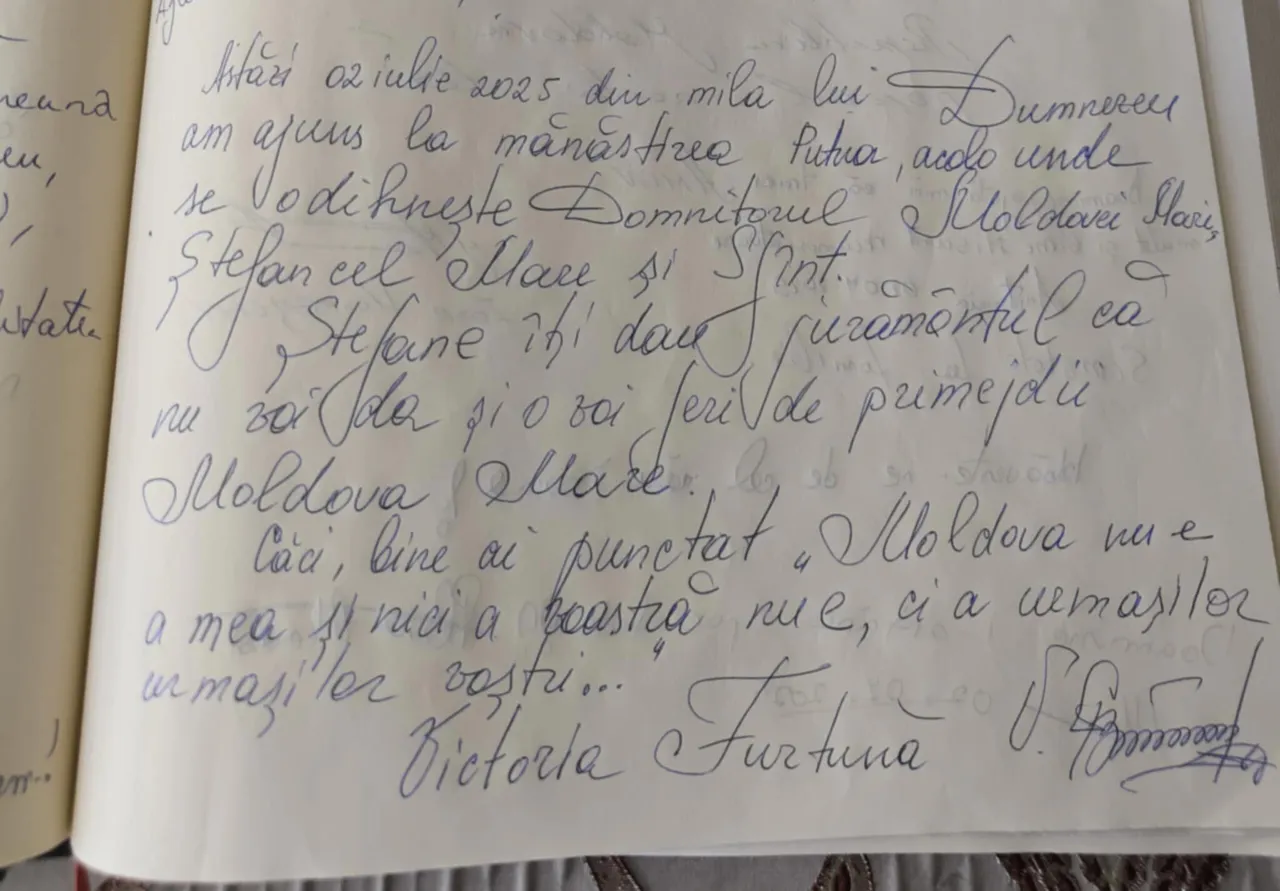 Astăzi 02 iulie 2025 din mila lui Dumnezeu
am ajuns la mănăstirea Putna, acolo unde
se odihnește Domnitorul Moldovei Mari,
Ștefan cel Mare și Sfînt.
Ștefane îți dau jurămîntul că
nu voi da și o voi feri de primejdii
Moldova Mare.
Căci, bine ai punctat „Moldova nu e
a mea și nici a voastră nu e, ci a urmașilor
urmașilor voștri..."
Victoria Furtună